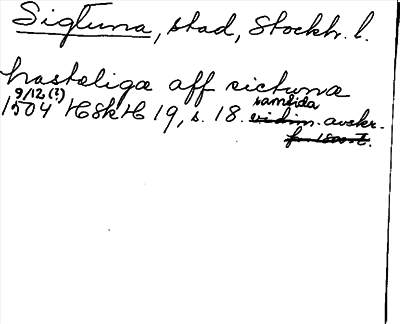 Sigtuna, stad, Stockh. l.
hastæliga aff sictunæ
9/12 (?)
1504 HSkH 19, s. 18. samtida avskr.